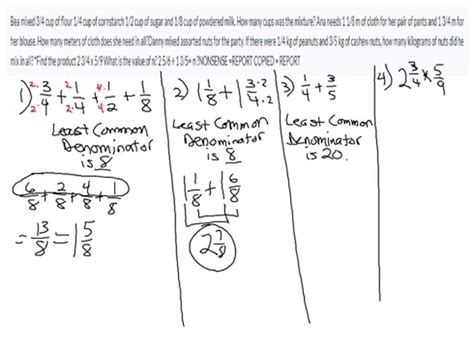 Bea mixed 3/4 cup of flour 1/4 cup of cornstarch 1/2 cup of sugar and 1/8 cup of powdered milk. How many cups was the mixture? Ana needs 1 1/8 m of cloth for her pair of pants and 1 3/4 m for
her blouse. How many meters of cloth does she need in all?Danny mixed assorted nuts for the party. If there were 1/4 kg of peanuts and 3/5 kg of cashew nuts, how many kilograms of nuts did he
mix in all? *Find the product 2 3/4 x 5/9 What is the value of n? 2 5/6 + 1 3/5= n ?NONSENSE •REPORT COPIED × REPORT
1) 2· 3/4 ·2 + 2· 1/4 ·2 + 4· 1/2 ·4 + 1/8
Least Common
Denominator
is 8
6/8 + 2/8 + 4/8 + 1/8
= 13/8 = 1 5/8
2) 1 1/8 + 1 3·2/4·2
Least Common
Denominator
is 8
1 1/8 + 1 6/8
2 7/8
3) 1/4 + 3/5
Least Common
Denominator
is 20.
4) 2 3/4 × 5/9